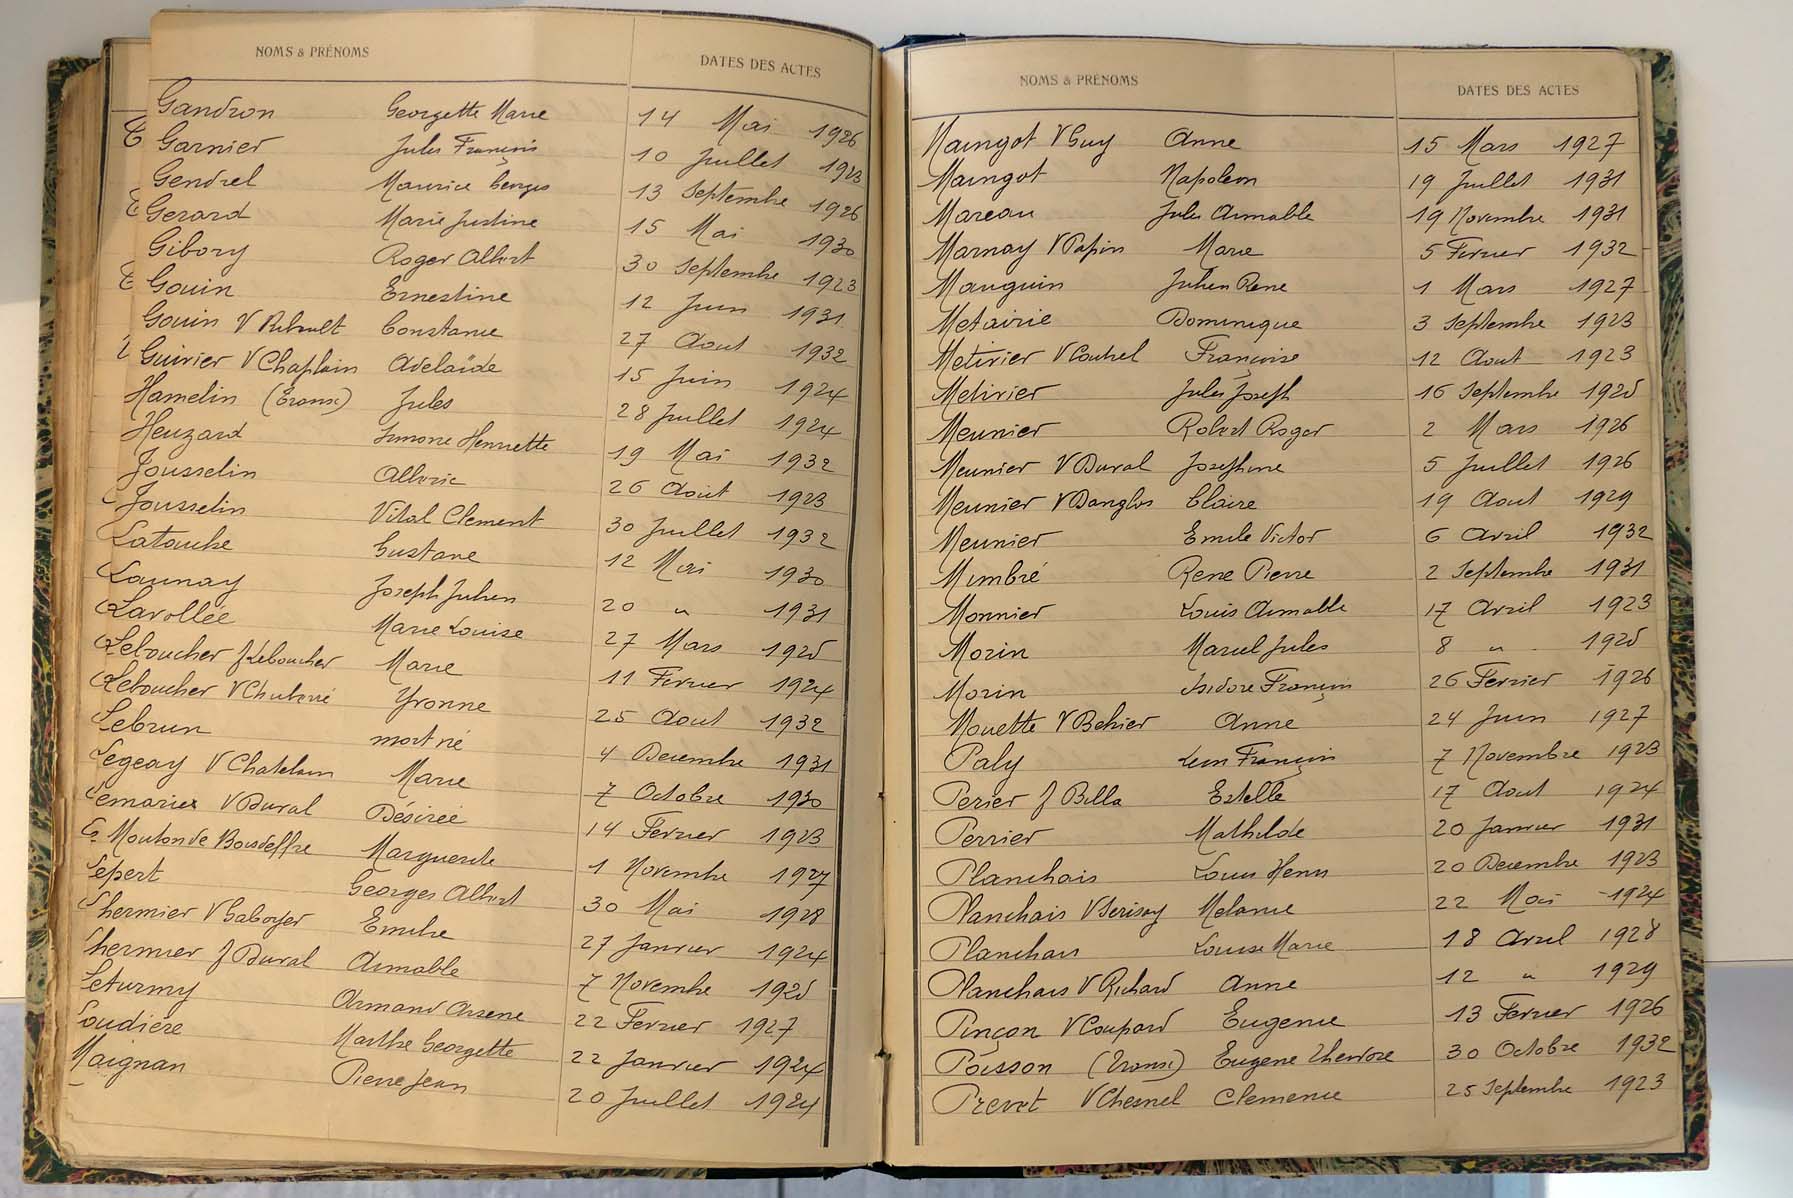 NOMS & PRÉNOMS DATES DES ACTES
Gandron Georgette Marie 14 Mai 1926
Garnier Jules François 10 Juillet 1923
Gendrel Maurice Georges 13 Septembre 1926
Gerard Marie Justine 15 Mai 1930
Gibory Roger Albert 30 Septembre 1923
Gouin Ernestine 12 Juin 1931
Gouin V Ribault Constance 27 Aout 1932
Guirier V Chaplain Adelaïde 15 Juin 1924
Hamelin (Trans) Jules 28 Juillet 1924
Heuzard Simone Henriette 19 Mai 1932
Jousselin Alberic 26 Août 1923
Jousselin Vital Clement 30 Juillet 1932
Latouche Gustave 12 Mai 1930
Launay Joseph Julien 20 " 1931
Lavollée Marie Louise 27 Mars 1925
Leboucher f Leboucher Marie 11 Fevrier 1924
Leboucher V Yvonne 25 Aout 1932
Lebrun mort né 4 Decembre 1931
Legeay V Chatelain Marie 7 Octobre 1930
Lemarier V Duval Désirée 14 Fevrier 1923
Mouton de Boisdeffre Marguerite 1 Novembre 1927
Lepert Georges Albert 30 Mai 1928
Lhermier V Gaboyer Emilie 27 Janvier 1924
Lhermier f Duval Aimable 7 Novembre 1925
Leturmy Armand Arsene 22 Fevrier 1927
Loudière Marthe Georgette 22 Janvier 1924
Maignan Pierre Jean 20 Juillet 1924
NOMS & PRÉNOMS DATES DES ACTES
Maingot V Guy Anne 15 Mars 1927
Maingot Napoleon 19 Juillet 1931
Mareau Jules Aimable 19 Novembre 1931
Marnay V Papin Marie 5 Fevrier 1932
Mauguin Julien Rene 1 Mars 1927
Metairie Dominique 3 Septembre 1923
Metivier V Coutrel Françoise 12 Aout 1923
Metivier Jules Joseph 16 Septembre 1925
Meunier Robert Roger 2 Mars 1926
Meunier V Duval Josephine 5 Juillet 1926
Meunier V Danglos Claire 19 Aout 1929
Meunier Emile Victor 6 Avril 1932
Mimbré Rene Pierre 2 Septembre 1931
Monnier Louis Aimable 17 Avril 1923
Morin Marcel Jules 8 " 1925
Morin Isidore François 26 Fevrier 1926
Mouette V Behier Anne 24 Juin 1927
Paly Leon François 7 Novembre 1923
Perier f Billa Estelle 17 Aout 1924
Perrier Mathilde 20 Janvier 1931
Planchais Louis Henri 20 Decembre 1923
Planchais V Serisay Melanie 22 Mai 1924
Planchais Louise Marie 18 Avril 1928
Planchais V Richard Anne 12 " 1929
Pinçon V Coupard Eugenie 13 Fevrier 1926
Poisson (Trans) Eugene Theodore 30 Octobre 1932
Prevot V Chesnel Clemence 25 Septembre 1923